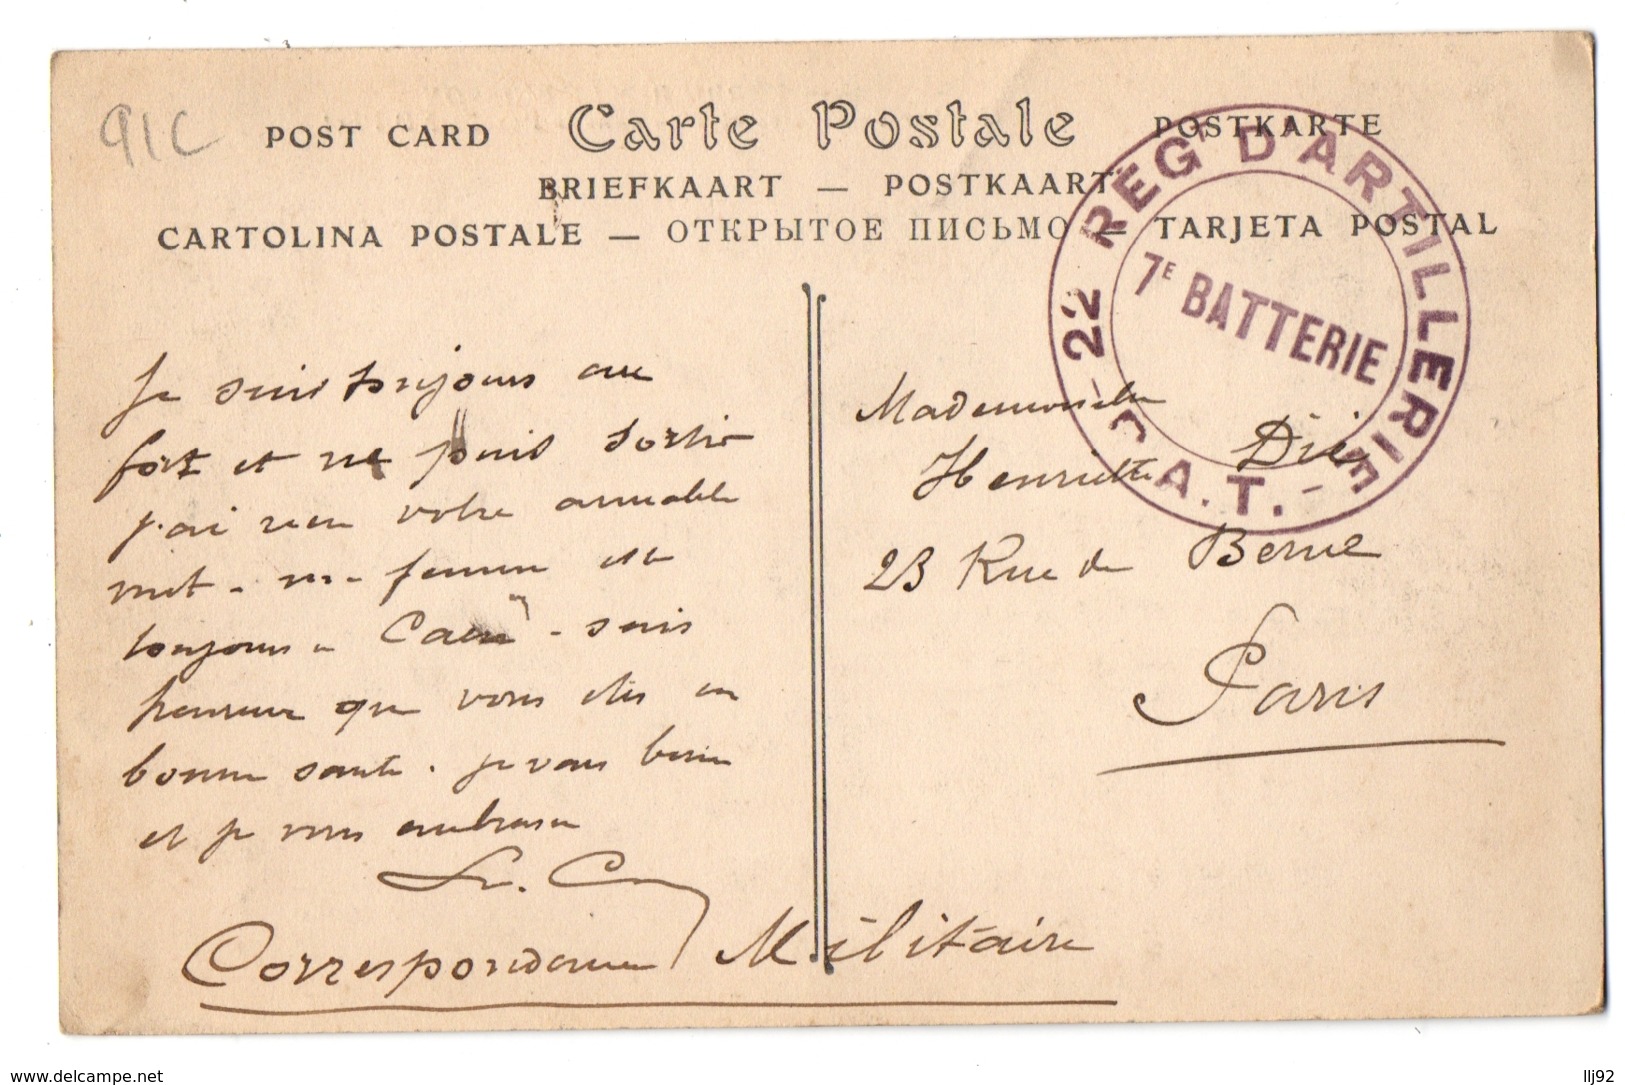 91C
POST CARD Carte Postale POSTKARTE
BRIEFKAART — POSTKAART
CARTOLINA POSTALE — ОТКРЫТОЕ ПИСЬМО — TARJETA POSTAL
22 REG D'ARTILLERIE - J.A.T. -
7E BATTERIE
Je suis toujours au
fort et ne puis sortir
j'ai reçu votre aimable
mot - ma femme est
toujours à Caen - suis
heureux que vous etes en
bonne santé. je vais bien
et je vous embrasse
Mademoiselle
Henriette Dié
23 Rue de Berne
Paris
Correspondance Militaire
www.delcampe.net
llj92